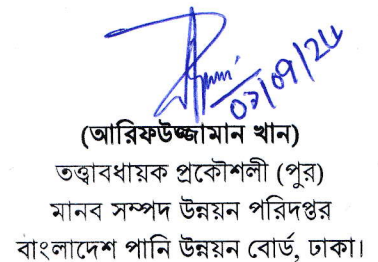 ০১/০৭/২৪
(আরিফউজ্জামান খান)
তত্ত্বাবধায়ক প্রকৌশলী (পুর)
মানব সম্পদ উন্নয়ন পরিদপ্তর
বাংলাদেশ পানি উন্নয়ন বোর্ড, ঢাকা।